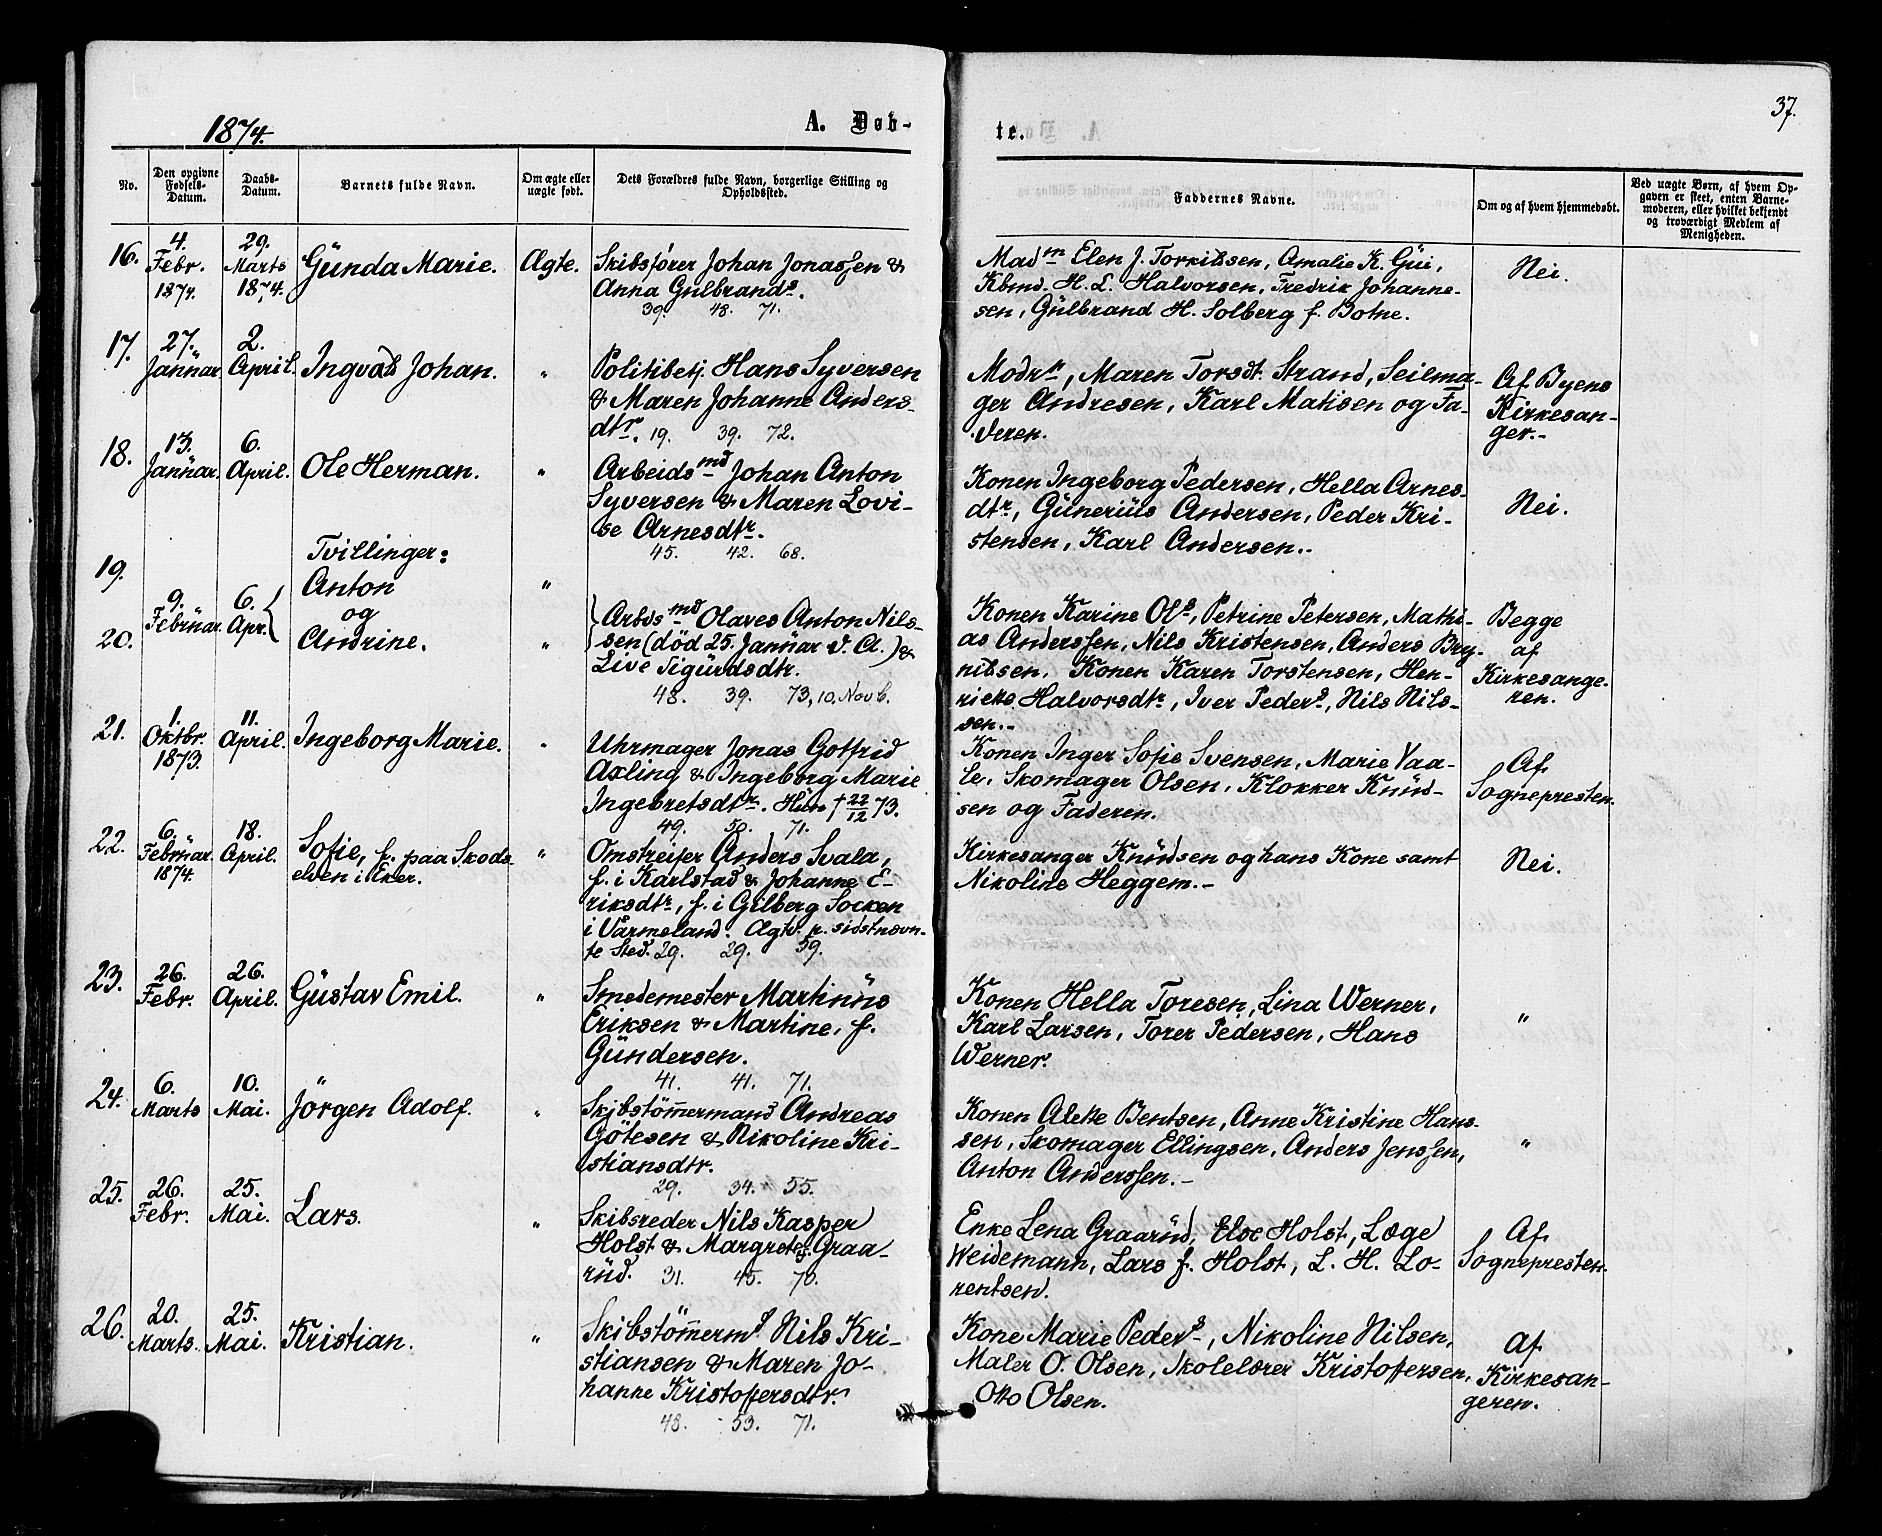 1874.
A. Døb-
te.
37.
No.
Den opgivne Fødsels-Datum.
Daabs-Datum.
Barnets fulde Navn.
Om ægte eller uægte født.
Dets Forældres fulde Navn, borgerlige Stilling og Opholdssted.
Faddernes Navne.
Om og af hvem hjemmedøbt.
Ved uægte Børn, af hvem Op-
gaven er skeet, enten Barne-
moderen, eller hvilket bekjendt
og troværdigt Medlem af
Menigheden.
16.
4. Febr. 1874.
29. Marts 1874.
Günda Marie.
Ægte.
Skibsfører Johan Jonassen &
Anna Gulbrands.
39. 48. 71.
Madm Elen J. Torkilsen, Amalie K. Güi,
Kbmd. H. L. Halvorsen, Fredrik Johanne-
sen, Gülbrand H. Solberg f. Botne.
Nei.
17.
27. Januar
2. April.
Ingvald Johan.
"
Politibetj. Hans Syversen
& Maren Johanne Anders-
dtr. 19. 39. 72.
Modrn, Maren Torsdt. Strand, Seilma-
ger Andresen, Karl Matisen og Fa-
deren.
Af Byens
Kirkesan-
ger.-
18.
13. Januar.
6. April.
Ole Herman.
"
Arbeidsmd Johan Anton
Syversen & Maren Lovi-
se Arnesdtr.
45. 42. 68.
Konen Ingeborg Pedersen, Hella Arnes-
dtr, Günerius Andersen, Peder Kri-
stensen, Karl Andersen.
Nei.
19.
20.
9. Februar.
6. Apr.
Tvillinger:
Anton
og
Andrine.
"
"
Arbdsmd Olaves Anton Nils-
sen (død 25. Januar d. A.) &
Live Sigürdsdtr.
48. 39. 73, 10. Novb.
Konen Karine Ols, Petrine Petersen, Mathi-
as Anderssen, Nils Kristensen, Anders Bry-
nilsen. Konen Karen Torstensen, Hen-
rikke Halvorsdtr, Iver Peders, Nils Nils-
sen.-
Begge
af
Kirkesange-
ren.
21.
1. Oktbr. 1873.
11. April.
Ingeborg Marie.
"
Uhrmager Jonas Gotfrid
Axling & Ingeborg Marie
Ingebretsdtr. Hün † 22/12 73.
49. 50. 71.
Konen Inger Sofie Svensen, Marie Vaa-
le, Skomager Olsen, Klokker Knüd-
sen og Faderen.
Af
Sognepresten.
22.
6. Februar. 1874.
18. April.
Sofie, f. paa Skods-
elven i Eker.
"
Omstreifer Anders Svala,
f. i Karlstad & Johanne E-
riksdtr, f. i Gilberg Socken
i Värmeland. Ægtv. p. sidstnævn-
te Sted. 29. 29. 59.
Kirkesanger Knüdsen og hans Kone samt
Nikoline Heggem.-
Nei.
23.
26. Febr.
26. April.
Güstav Emil.
"
Smedemester Martinüs
Eriksen & Martine, f.
Gündersen.
41. 41. 71.
Konen Hella Toresen, Lina Werner,
Karl Larsen, Torer Pedersen, Hans
Werner.
"
24.
6. Marts
10. Mai.
Jörgen Adolf.
"
Skibstömmermand Andreas
Götesen & Nikoline Kri-
stiansdtr.
29. 34. 55.
Konen Alette Bentsen, Anne Kristine Hans-
sen, Skomager Ellingsen, Anders Jenssen,
Anton Anderssen.-
"
25.
26. Febr.
25. Mai.
Lars.
"
Skibsreder Nils Kasper
Holst & Margrete Graa-
rüd. 31. 45. 70.
Enke Lena Graarüd, Else Holst, Læge
Weidemann, Lars f. Holst, L. H. Lo-
rentsen.
Af
Sognepresten.
26.
20. Marts.
25. Mai.
Kristian.
"
Skibstömmermd Nils Kri-
stiansen & Maren Jo-
hanne Kristoffersdtr.
48. 53. 71.
Kone Marie Peders, Nikoline Nilsen,
Maler O. Olsen, Skolelærer Kristoffersen,
Otto Olsen.
Af
Kirkesan-
geren.